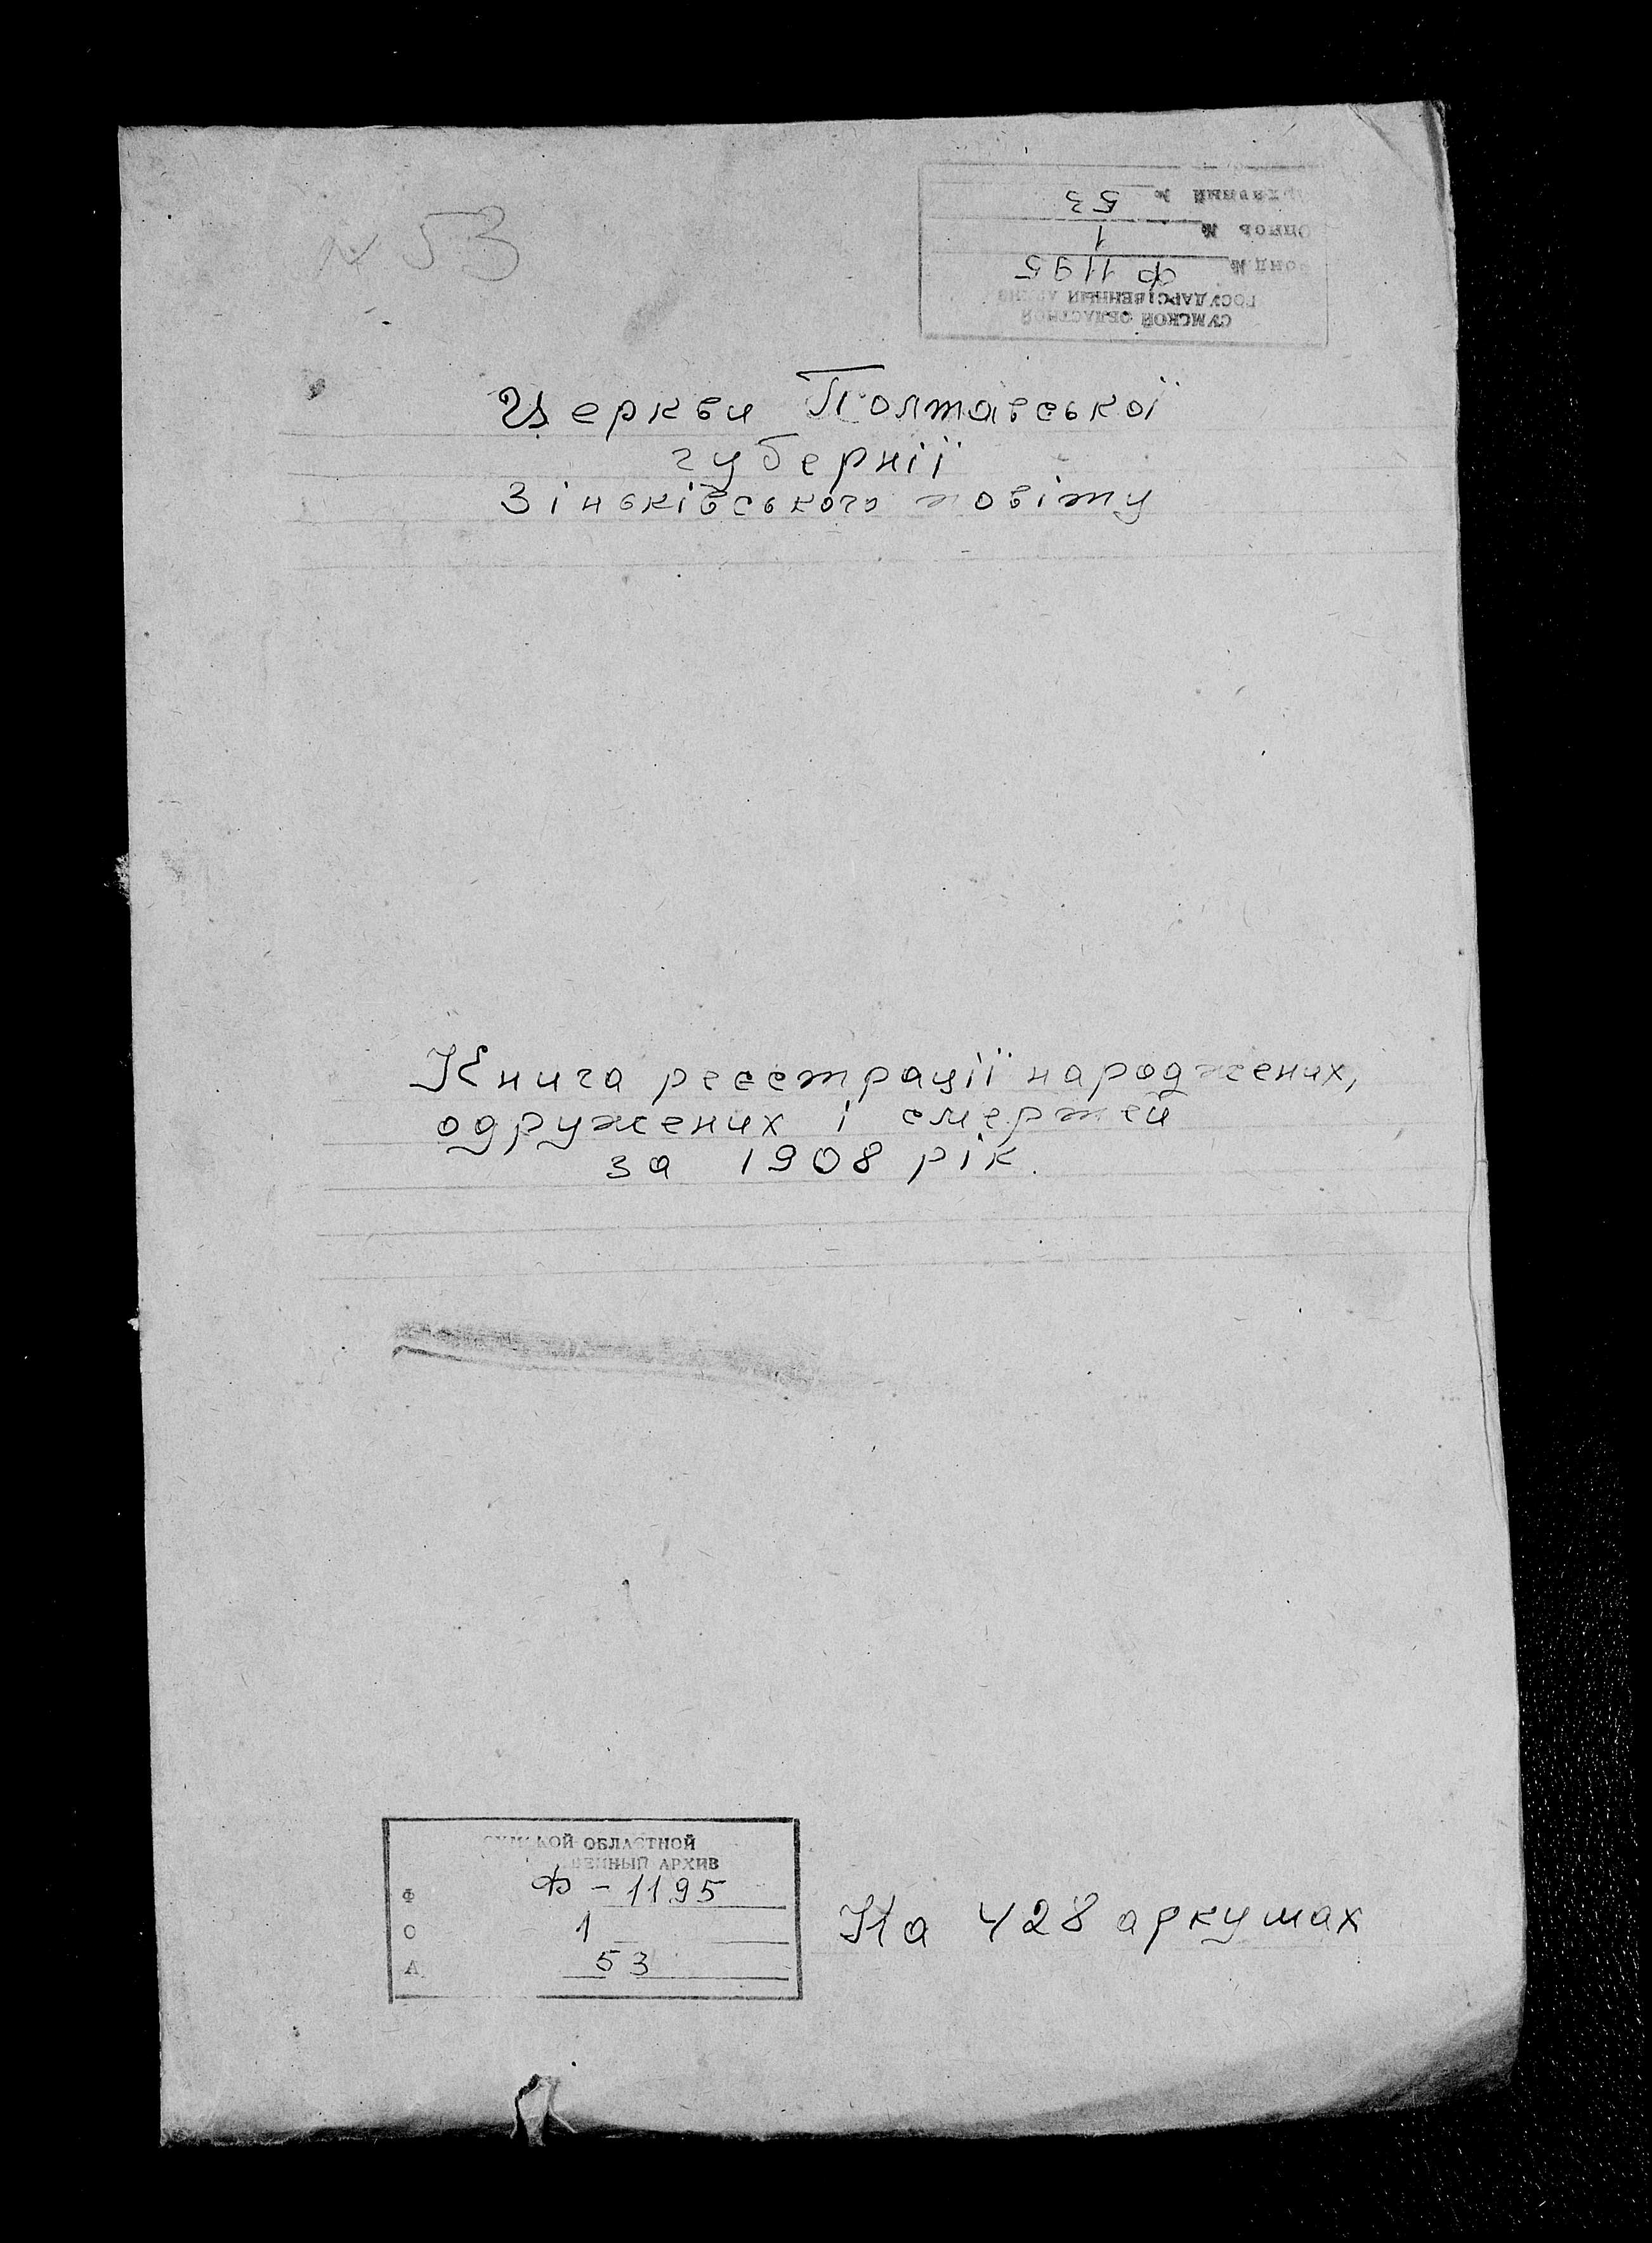 № 53
СУМСКОЙ ОБЛАСТНОЙ
ГОСУДАРСТВЕННЫЙ АРХИВ
Фонд № Ф 1195
Опись № 1
Архивный № 53
Церкви Полтавської
губернії
Зіньківського повіту
Книга реєстрації народжених,
одружених і смертей
за 1908 рік.
СУМСКОЙ ОБЛАСТНОЙ
ВЕННЫЙ АРХИВ
Ф Ф-1195
О 1
А 53
На 428 аркушах